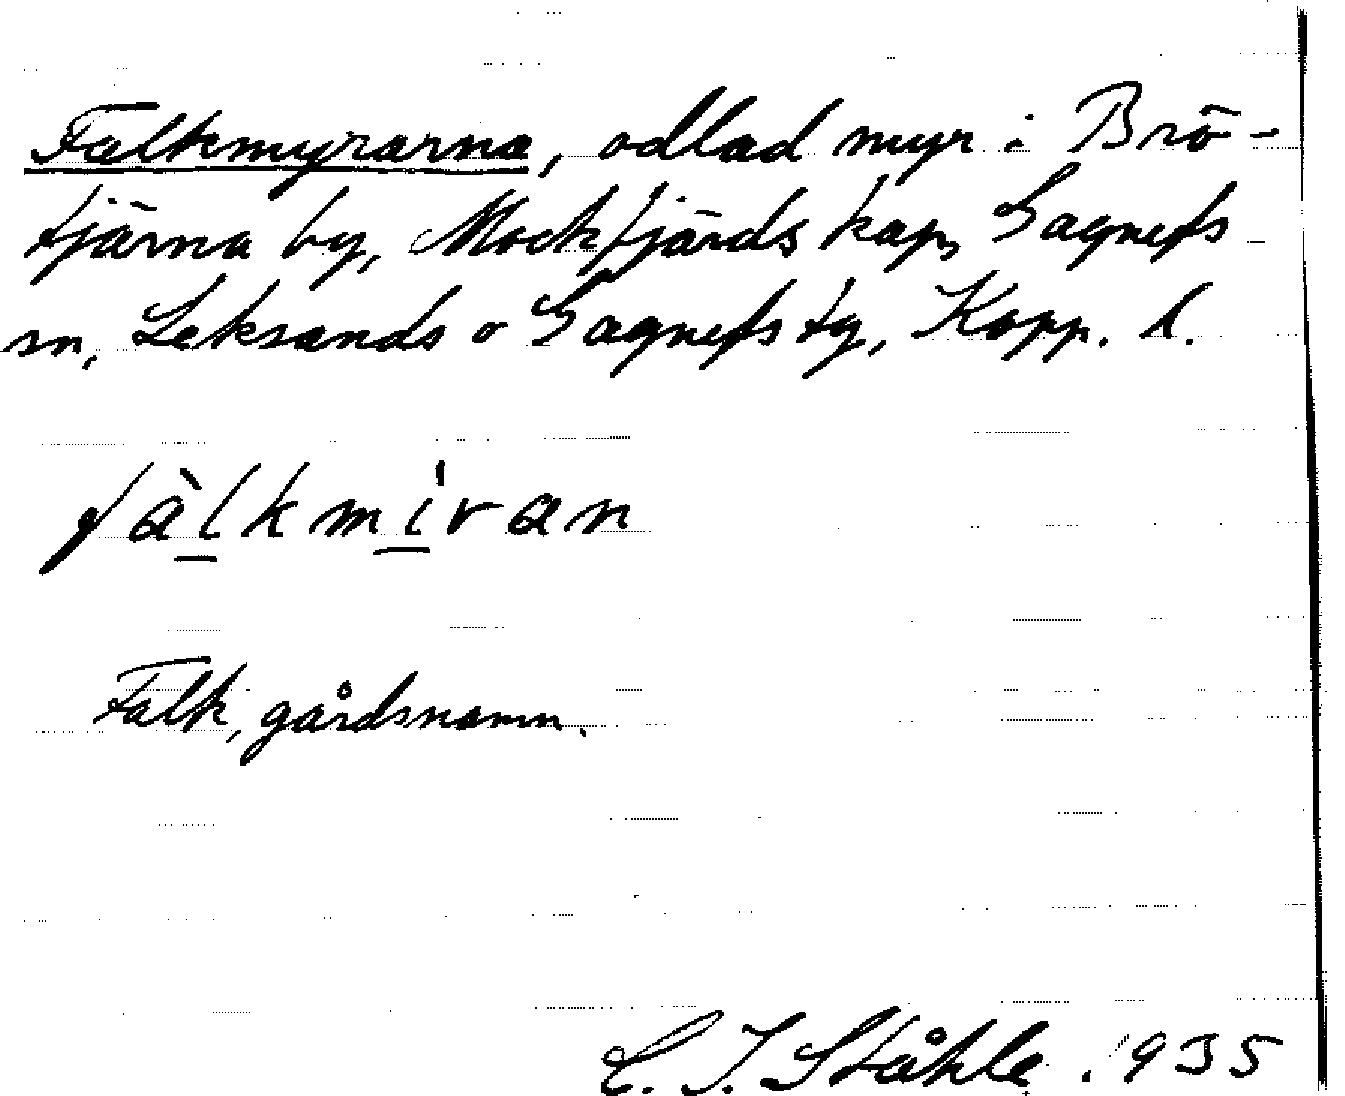 Falkmyrarna, odlad myr i Brö-
tjärna by, Mockfjärds kap, Gagnefs
sn, Leksands o Gagnefs tg, Kopp. l.
fàlkmíran
Falk, gårdsnamn.
C. I. Ståhle. 1935